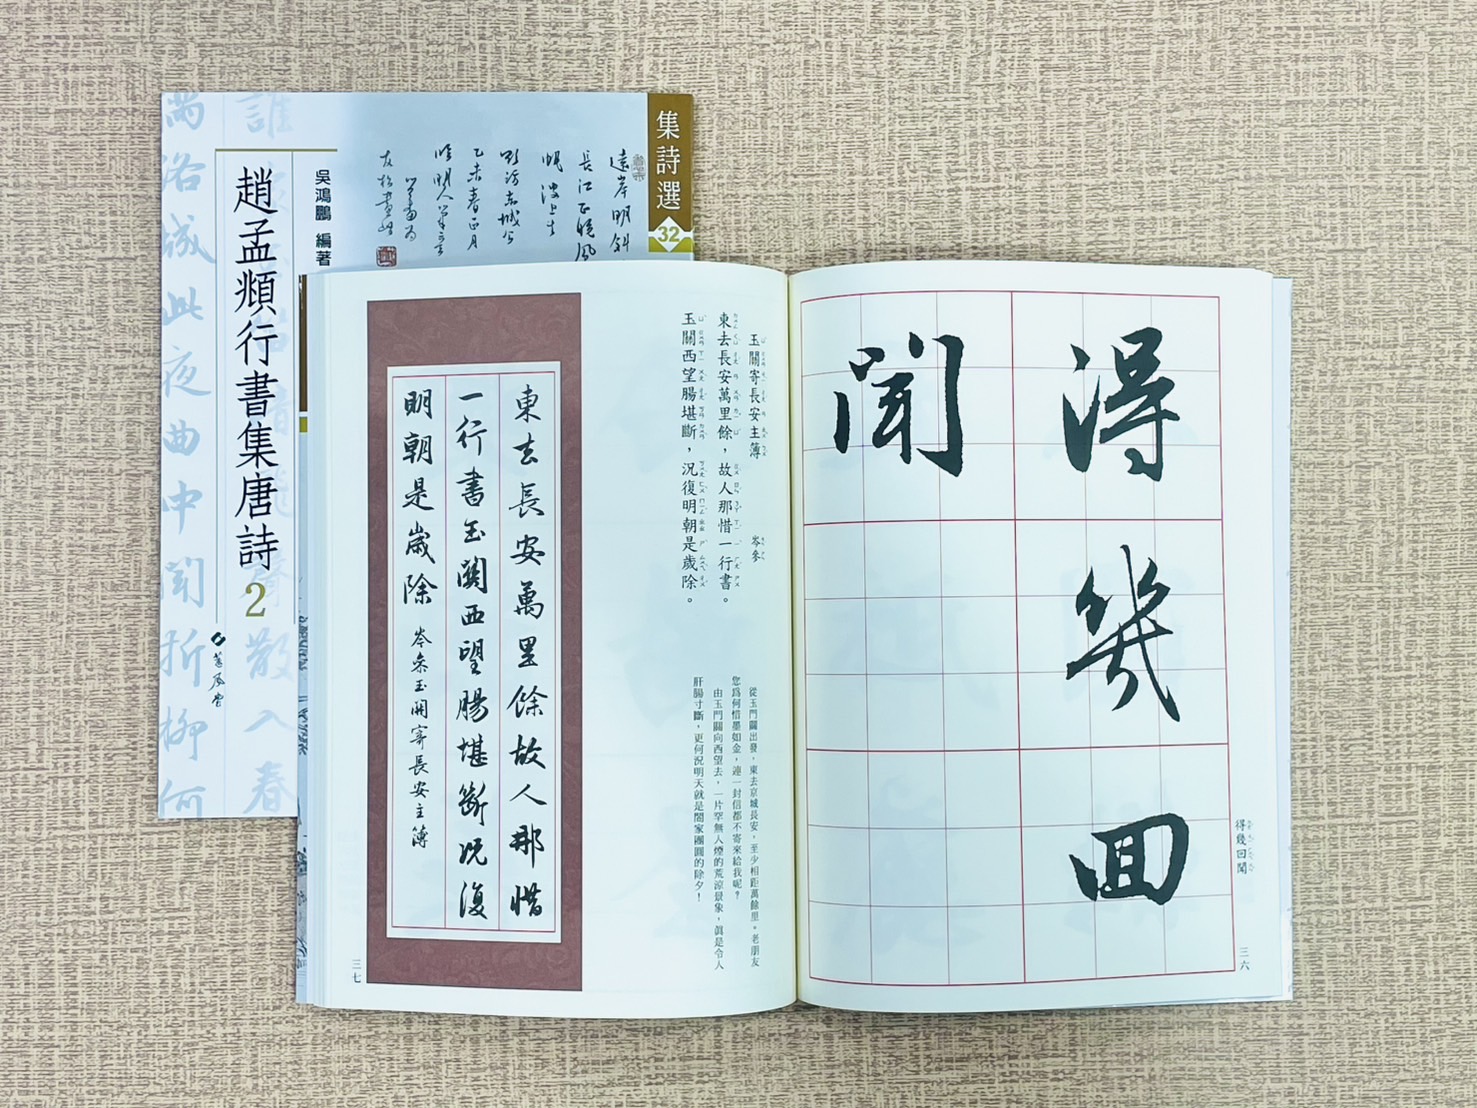 集詩選
32
遠岸明斜
長江正曉風
帆
乙未春正月
趙孟頫行書集唐詩2
吳鴻鵬 編著
蕙風堂
誰
散入春
滿洛城此夜曲中聞折柳何
得幾回
聞
得幾回聞
三六
玉關寄長安主簿 岑參
東去長安萬里餘，故人那惜一行書。
玉關西望腸堪斷，況復明朝是歲除。
從玉門關出發，東去京城長安，至少相距萬餘里。老朋友
您為何惜墨如金，連一封信都不寄來給我呢？
由玉門關向西望去，一片罕無人煙的荒涼景象，真是令人
肝腸寸斷，更何況明天就是閤家團圓的除夕！
東去長安萬里餘故人那惜
一行書玉關西望腸堪斷況復
明朝是歲除 岑參玉關寄長安主簿
三七